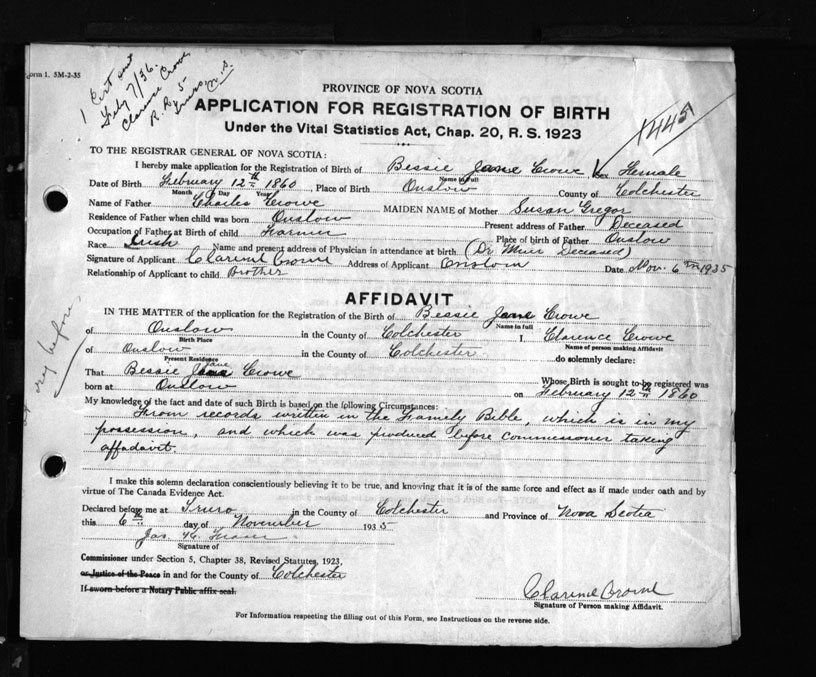 Form 1. 5M-2-35
1 Cert sent
Feby 7/36.
Clarence Crowe
R.R. 5
Truro, N.S.
PROVINCE OF NOVA SCOTIA
APPLICATION FOR REGISTRATION OF BIRTH
Under the Vital Statistics Act, Chap. 20, R. S. 1923
1445
TO THE REGISTRAR GENERAL OF NOVA SCOTIA:
I hereby make application for the Registration of Birth of Bessie Jane Crowe Sex Female
Name in Full
Date of Birth February 12th 1860, Place of Birth Onslow County of Colchester
Month Day Year
Name of Father Charles Crowe MAIDEN NAME of Mother Susan Gregor
Residence of Father when child was born Onslow Present address of Father Deceased
Occupation of Father at Birth of child Farmer Place of birth of Father Onslow
Race Irish Name and present address of Physician in attendance at birth (Dr Muir Deceased)
Signature of Applicant Clarence Crowe Address of Applicant Onslow Date Nov. 6th 1935
Relationship of Applicant to child Brother
AFFIDAVIT
IN THE MATTER of the application for the Registration of the Birth of Bessie Jane Crowe
Name in full
of Onslow in the County of Colchester I, Clarence Crowe
Birth Place Name of person making Affidavit
of Onslow in the County of Colchester do solemnly declare:
Present Residence
That Bessie Jane Crowe Whose Birth is sought to be registered was
born at Onslow on February 12th 1860
My knowledge of the fact and date of such Birth is based on the following Circumstances:
From records written in the Family Bible, which is in my
possession, and which was produced before commissioner taking
affadavit.
I make this solemn declaration conscientiously believing it to be true, and knowing that it is of the same force and effect as if made under oath and by
virtue of The Canada Evidence Act.
Declared before me at Truro in the County of Colchester and Province of Nova Scotia
this 6th day of November 1935
Jas.
Signature of
Commissioner under Section 5, Chapter 38, Revised Statutes, 1923,
or Justice of the Peace in and for the County of Colchester
If sworn before a Notary Public affix seal.
Clarence Crowe
Signature of Person making Affidavit.
For Information respecting the filling out of this Form, see Instructions on the reverse side.